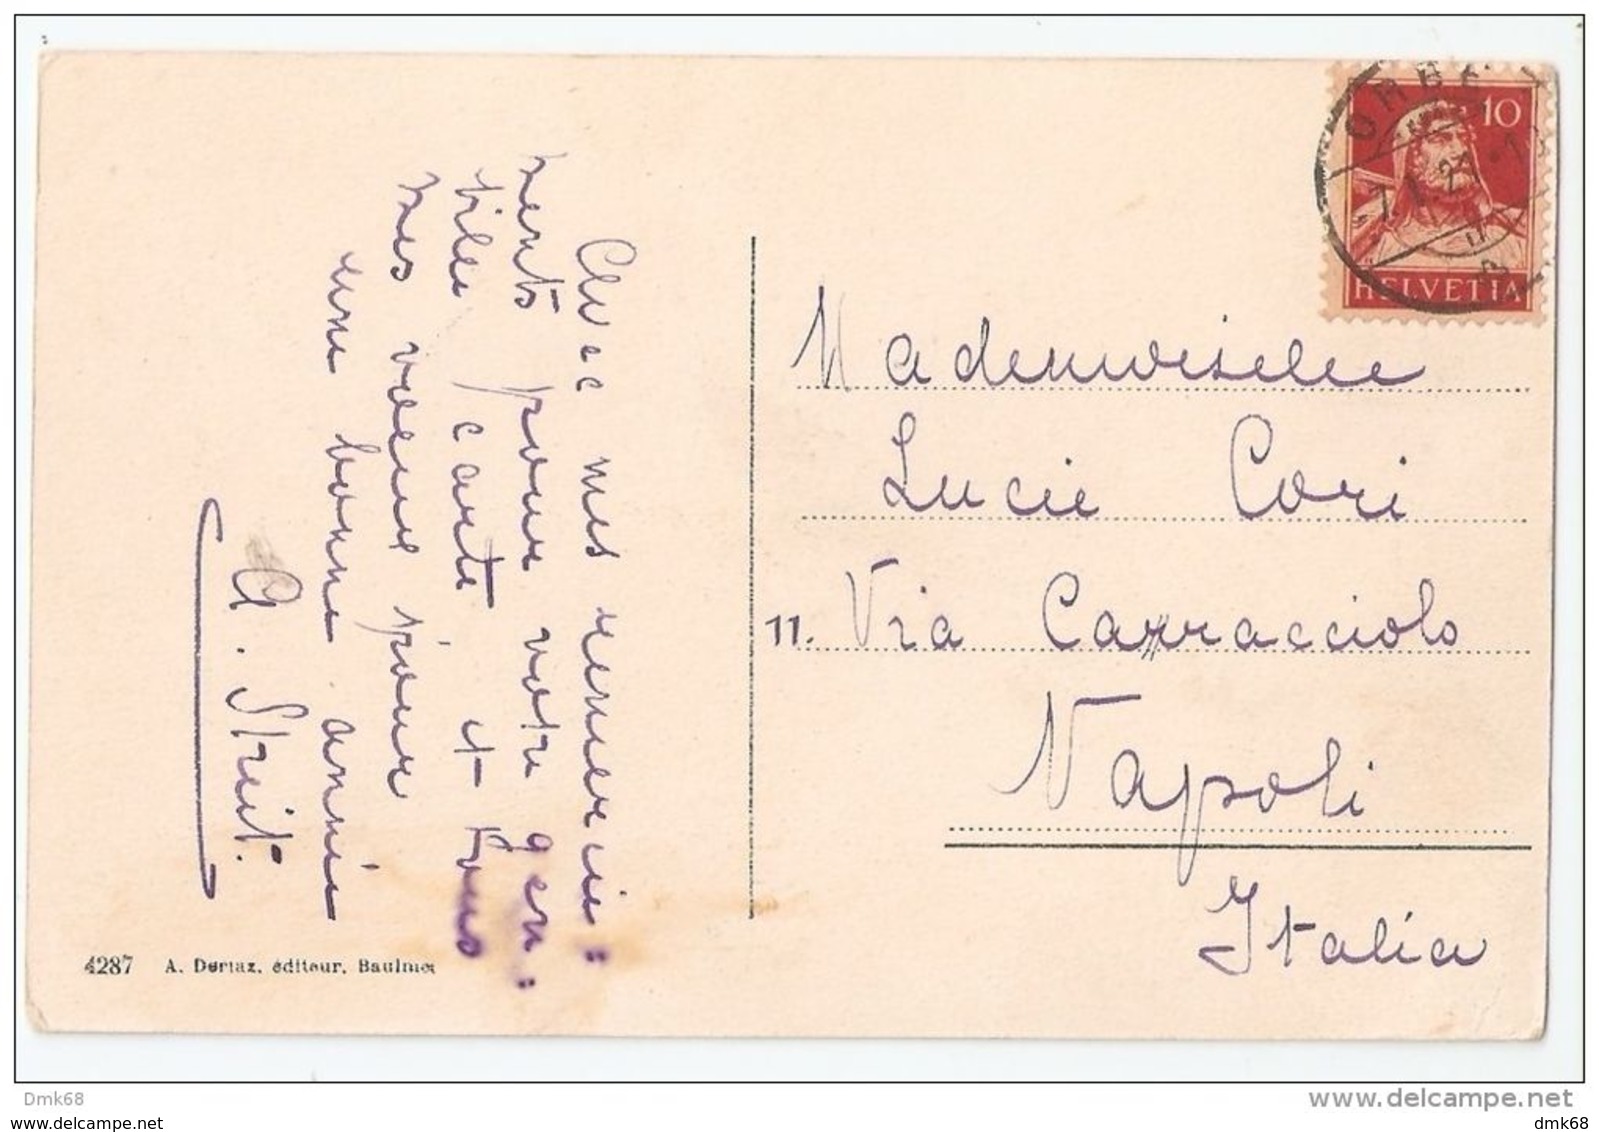 Avec mes remercie:
ments pour votre gen:
tille carte, et tous
mes voeux pour
une bonne année
A. Streit.
4287 A. Dériaz, éditeur, Baulmes
ORBE
-7.1.21
10
HELVETIA
Mademoiselle
Lucie Cori
11. Via Carracciolo
Napoli
Italia
Dmk68
www.delcampe.net
Dmk68
dmk68